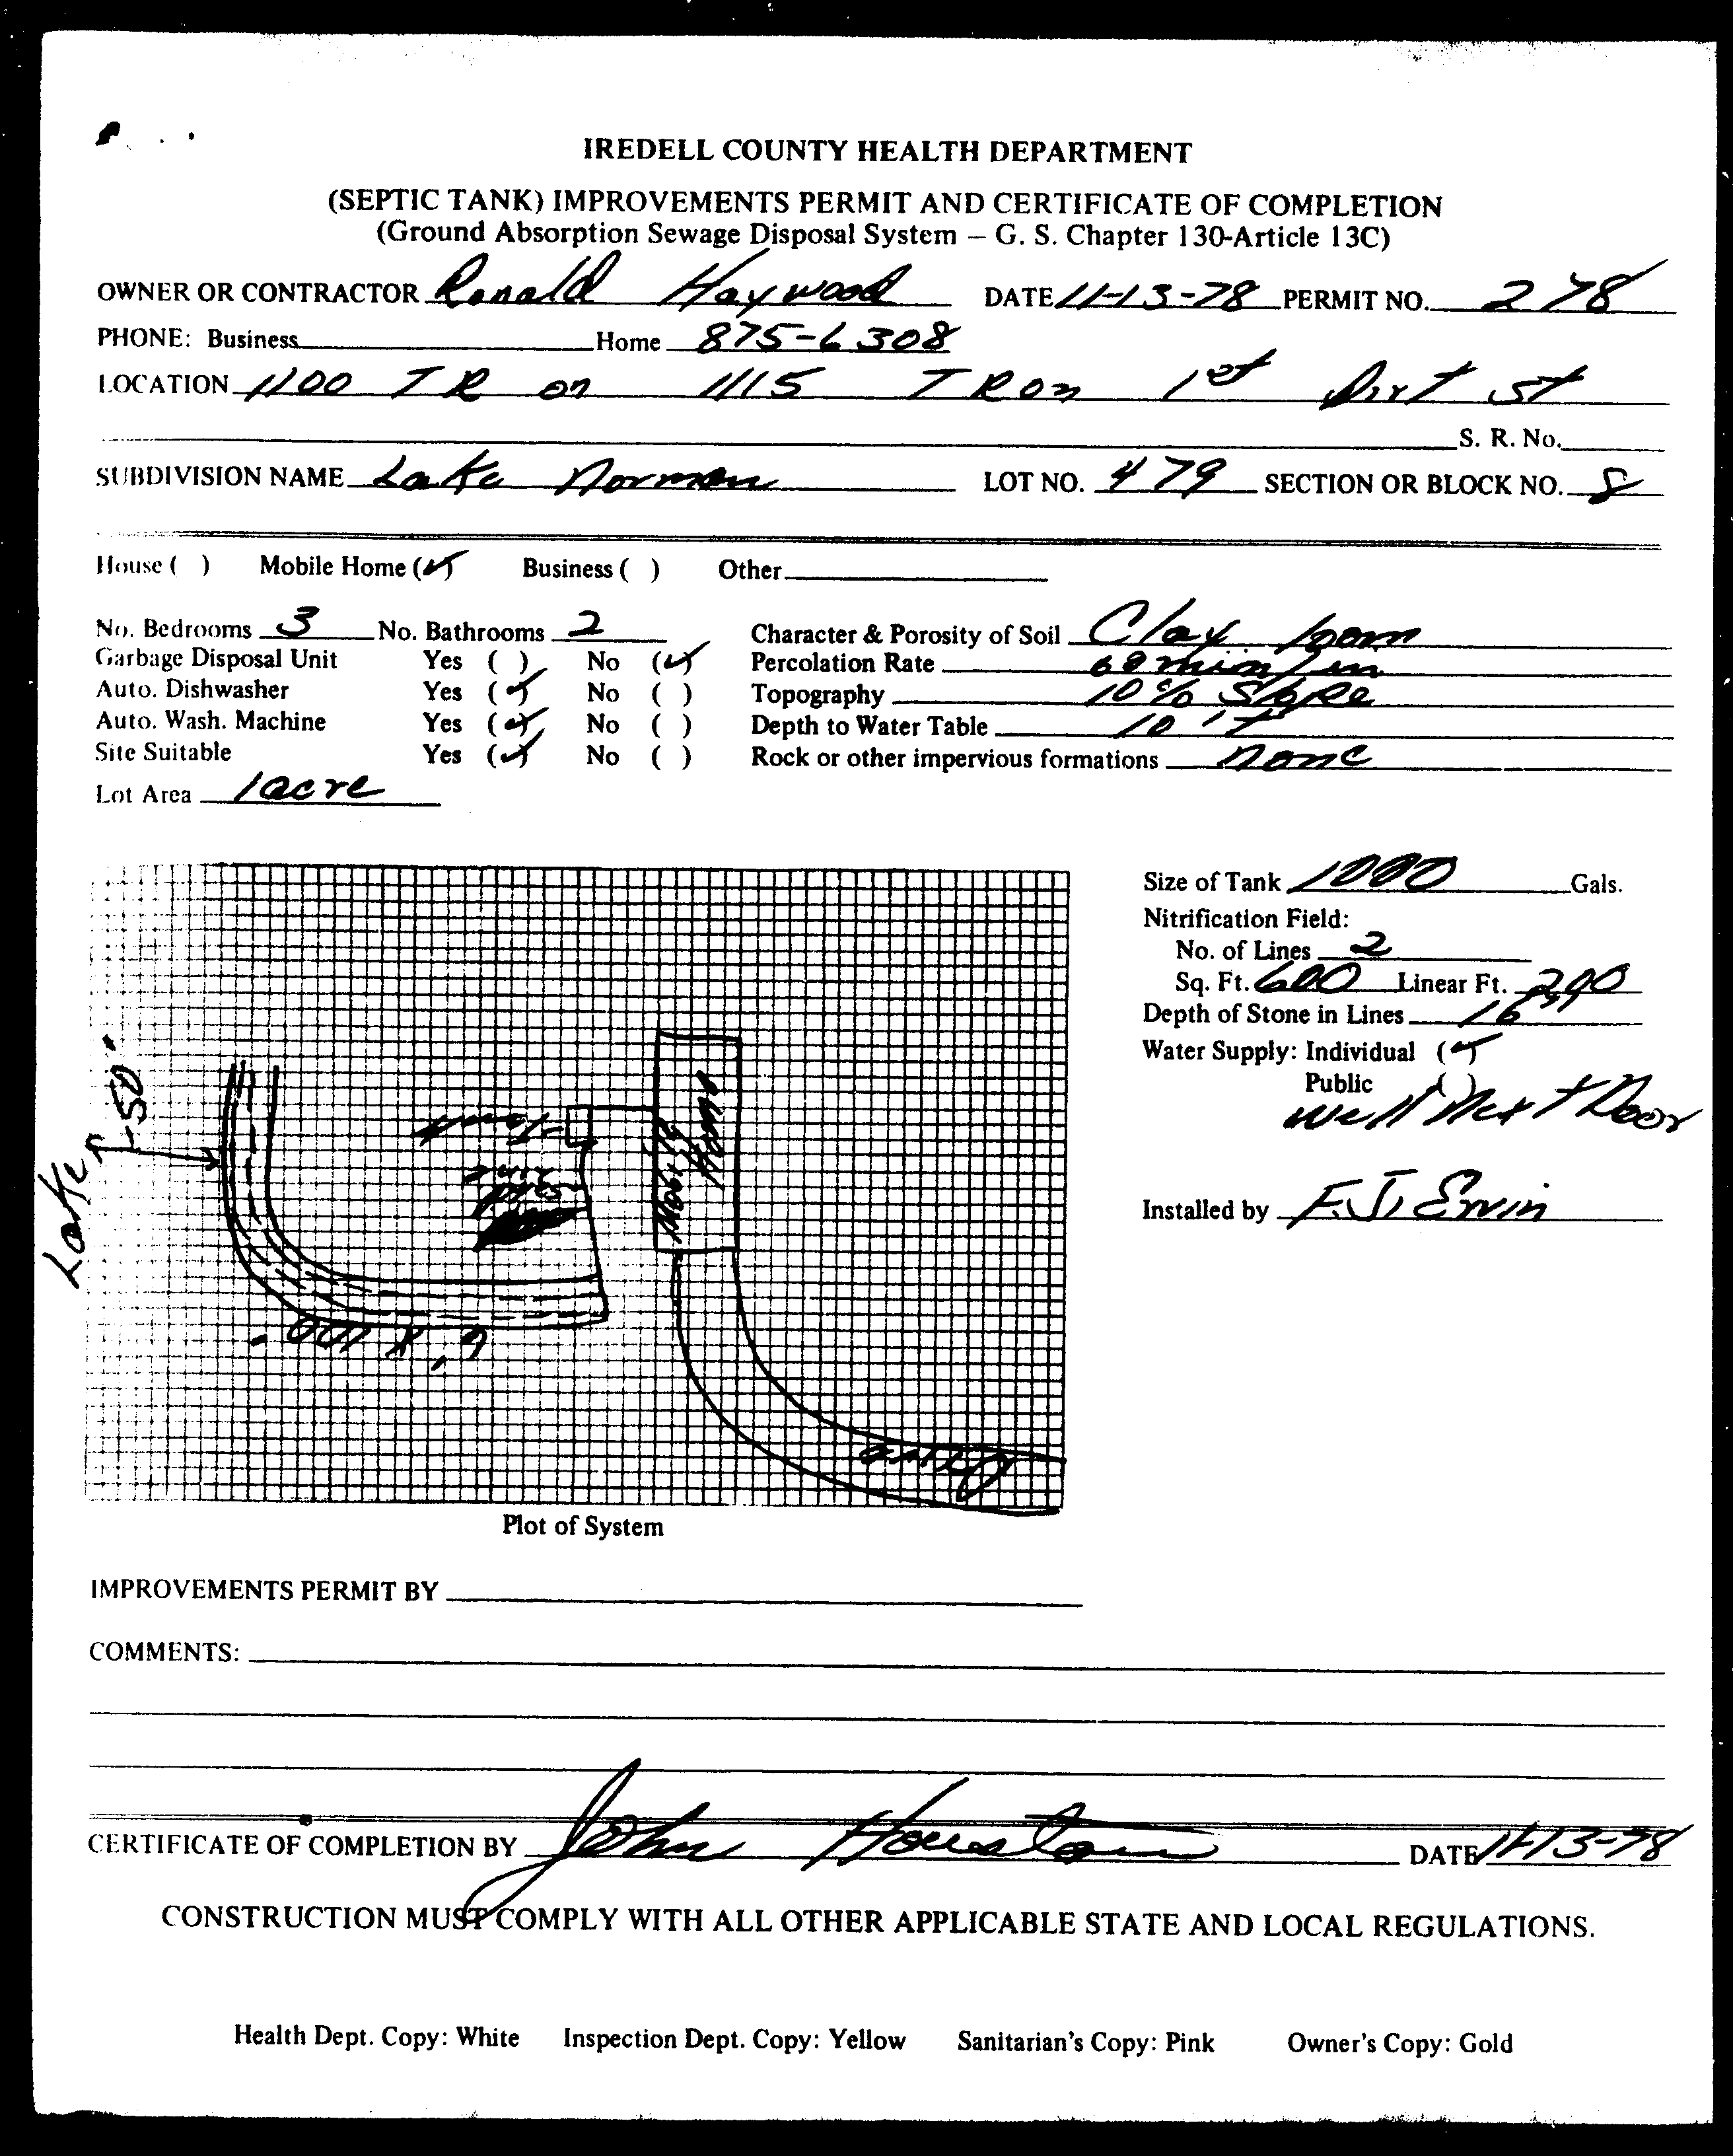 IREDELL COUNTY HEALTH DEPARTMENT
(SEPTIC TANK) IMPROVEMENTS PERMIT AND CERTIFICATE OF COMPLETION
(Ground Absorption Sewage Disposal System — G. S. Chapter 130-Article 13C)
OWNER OR CONTRACTOR Ronald Haywood DATE 11-13-78 PERMIT NO. 278
PHONE: Business Home 875-6308
LOCATION 1100 TR on 1115 TR on 1st Dirt St
S. R. No.
SUBDIVISION NAME Lake Norman LOT NO. 479 SECTION OR BLOCK NO. 8
House ( ) Mobile Home (✓) Business ( ) Other
No. Bedrooms 3 No. Bathrooms 2 Character & Porosity of Soil Clay loam
Garbage Disposal Unit Yes ( ) No (✓) Percolation Rate 60 min/in
Auto. Dishwasher Yes (✓) No ( ) Topography 10% Slope
Auto. Wash. Machine Yes (✓) No ( ) Depth to Water Table 10'+
Site Suitable Yes (✓) No ( ) Rock or other impervious formations none
Lot Area 1 acre
Size of Tank 1000 Gals.
Nitrification Field:
No. of Lines 2
Sq. Ft. 600 Linear Ft. 200
Depth of Stone in Lines 16"
Water Supply: Individual (✓)
Public ( )
Well Next Door
Installed by F.J. Ervin
Lake 50'
Tank
Mobile Home
6' x 100'
Drive
Plot of System
IMPROVEMENTS PERMIT BY
COMMENTS:
CERTIFICATE OF COMPLETION BY John Houston DATE 11-13-78
CONSTRUCTION MUST COMPLY WITH ALL OTHER APPLICABLE STATE AND LOCAL REGULATIONS.
Health Dept. Copy: White Inspection Dept. Copy: Yellow Sanitarian's Copy: Pink Owner's Copy: Gold